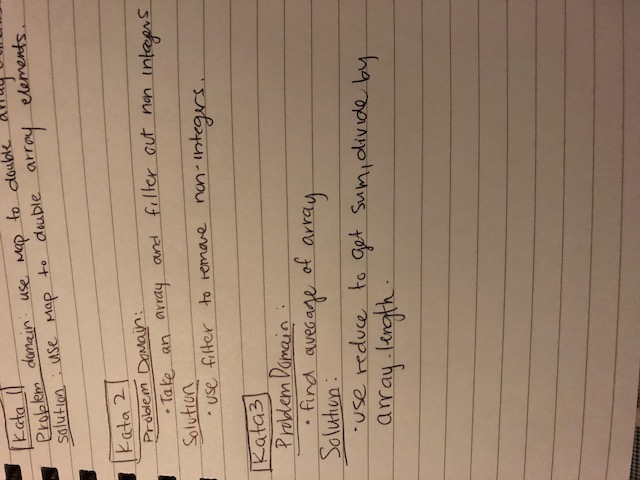 Kata 1
Problem domain: use Map to double array
Solution: use Map to double array elements.
Kata 2
Problem Domain:
• Take an array and filter out non integers
Solution
• use filter to remove non-integers.
Kata3
Problem Domain:
• find average of array
Solution:
• use reduce to get sum, divide by
array.length.